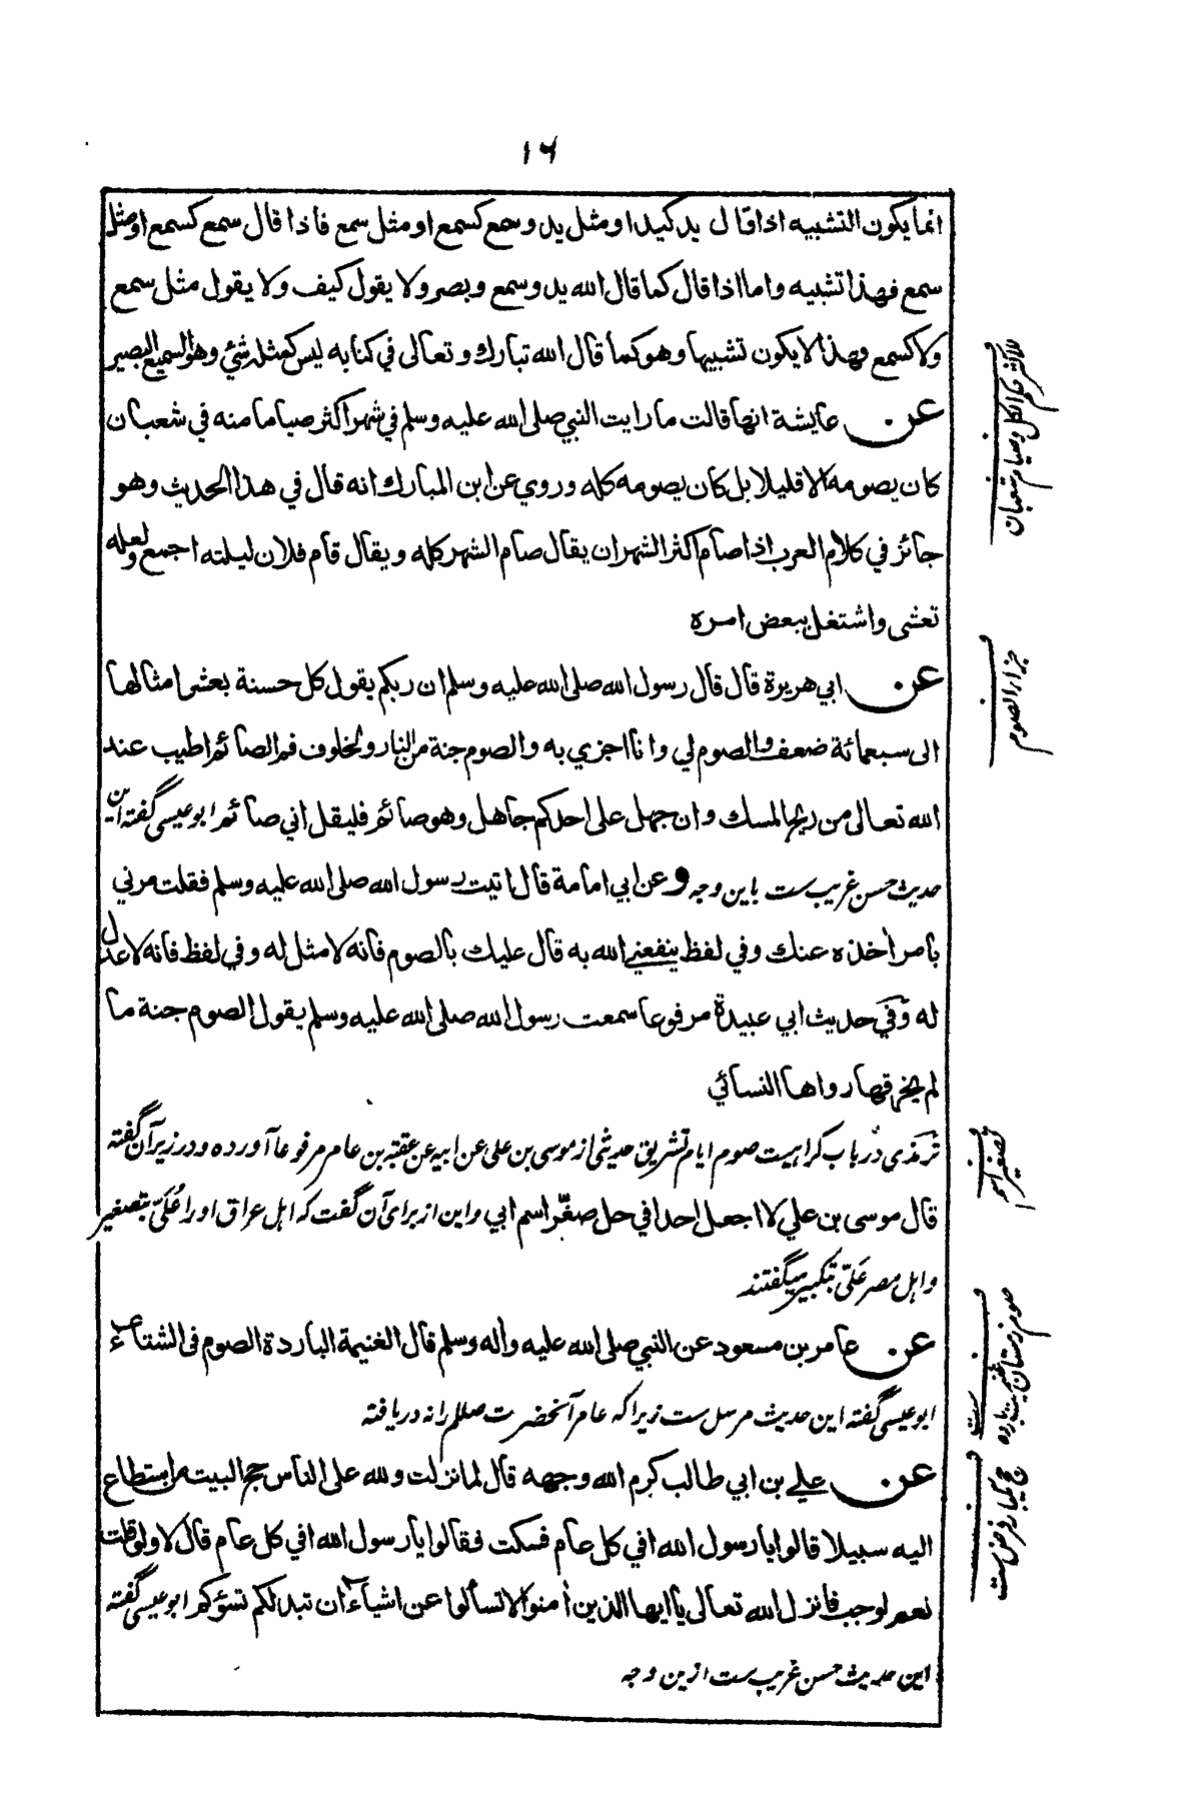 ١٦
انما يكون التشبيه اذا قال يد كيد او مثل يد وسمع كسمع او مثل سمع فاذا قال سمع كسمع او مثل
سمع فهذا تشبيه واما اذا قال كما قال الله يد وسمع وبصر ولا يقول كيف ولا يقول مثل سمع
ولا كسمع فهذا لا يكون تشبيها وهو كما قال الله تبارك وتعالى في كتابه ليس كمثله شئ وهو السميع البصير
عن عايشة انها قالت ما رايت النبي صلى الله عليه وسلم في شهر اكثر صياما منه في شعبان
كان يصومه الا قليلا بل كان يصومه كله وروي عن ابن المبارك انه قال في هذا الحديث وهو
جائز في كلام العرب اذا صام اكثر الشهر ان يقال صام الشهر كله ويقال قام فلان ليلته اجمع ولعله
تعشى واشتغل ببعض امره
عن ابي هريرة قال قال رسول الله صلى الله عليه وسلم ان ربكم يقول كل حسنة بعشر امثالها
الى سبعمائة ضعف والصوم لي وانا اجزي به والصوم جنة من النار ولخلوف فم الصائم اطيب عند
الله تعالى من ريح المسك وان جهل على احدكم جاهل وهو صائم فليقل اني صائم ابو عيسى گفته اين
حديث حسن غريب ست باين وجه وعن ابي امامة قال اتيت رسول الله صلى الله عليه وسلم فقلت مرني
بامر اخذه عنك وفي لفظ ينفعني الله به قال عليك بالصوم فانه لا مثل له وفي لفظ فانه لا عدل
له وفي حديث ابي عبيدة مرفوعا سمعت رسول الله صلى الله عليه وسلم يقول الصوم جنة ما
لم يخرقها رواها النسائي
ترمذی در باب کراهیت صوم ایام تشریق حدیثی از موسی بن علی عن ابیه عن عقبة بن عامر مرفوعا آورده و در زیر آن گفته
قال موسى بن علي لا اجعل احدا في حل صغّر اسم ابي واین از برای آن گفت که اهل عراق او را عُلَيّ بتصغیر
و اهل مصر عَليّ بتکبیر میگفتند
عن عامر بن مسعود عن النبي صلى الله عليه وأله وسلم قال الغنيمة الباردة الصوم فى الشتاء
ابو عیسی گفته این حدیث مرسل ست زیرا که عامر آنحضرت صللم را نه دریافته
عن علي بن ابي طالب كرم الله وجهه قال لما نزلت ولله على الناس حج البيت من استطاع
اليه سبيلا قالوا يا رسول الله افي كل عام فسكت فقالوا يا رسول الله افي كل عام قال لا ولو قلت
نعم لوجب فانزل الله تعالى يا ايها الذين أمنوا لا تسألوا عن اشياء ان تبدلكم تسؤكم ابو عیسی گفته
این حدیث حسن غریب ست ازین وجه
للاكثر حكم الكل وصيام شعبان
جزاء الصوم
تصغير اسم
صوم زمستان غنيمت بارده ست
حج يكبار فرض ست